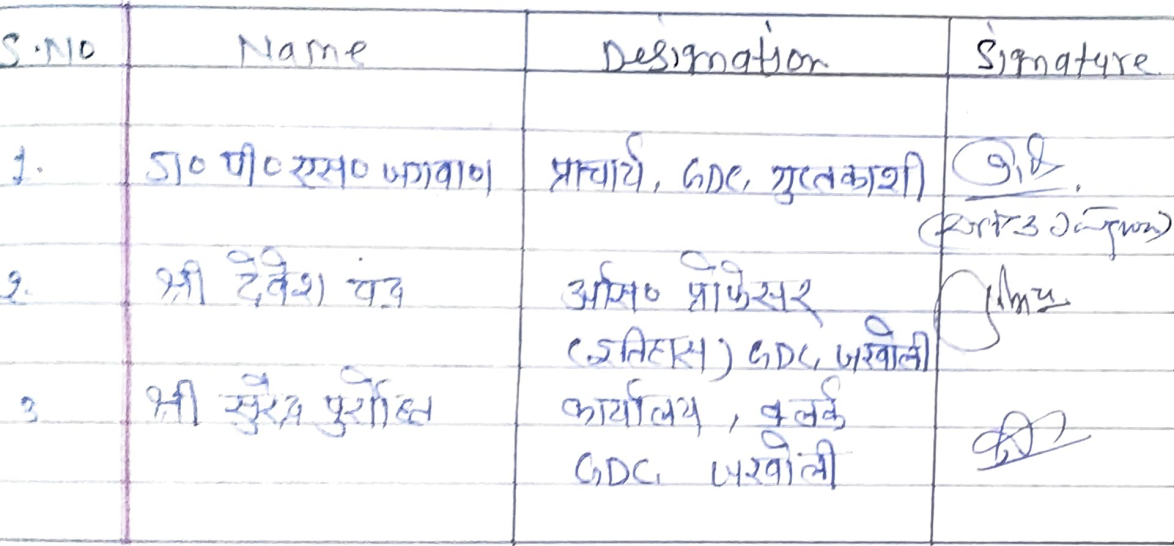 S.NO Name Designation Signature
1. डा० पी० एस० जगवाण प्राचार्य, GDC, गुप्तकाशी
2. श्री देवेश चंद्र असि० प्रोफेसर
(इतिहास) GDC, जखोली
3 श्री सुरेन्द्र पुरोहित कार्यालय, क्लर्क
GDC, जखोली